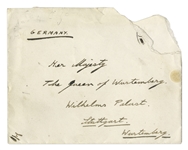 GERMANY.
Her Majesty
The Queen of Wurtemberg
Wilhelms Palast
Stuttgart.
Wurtemberg.